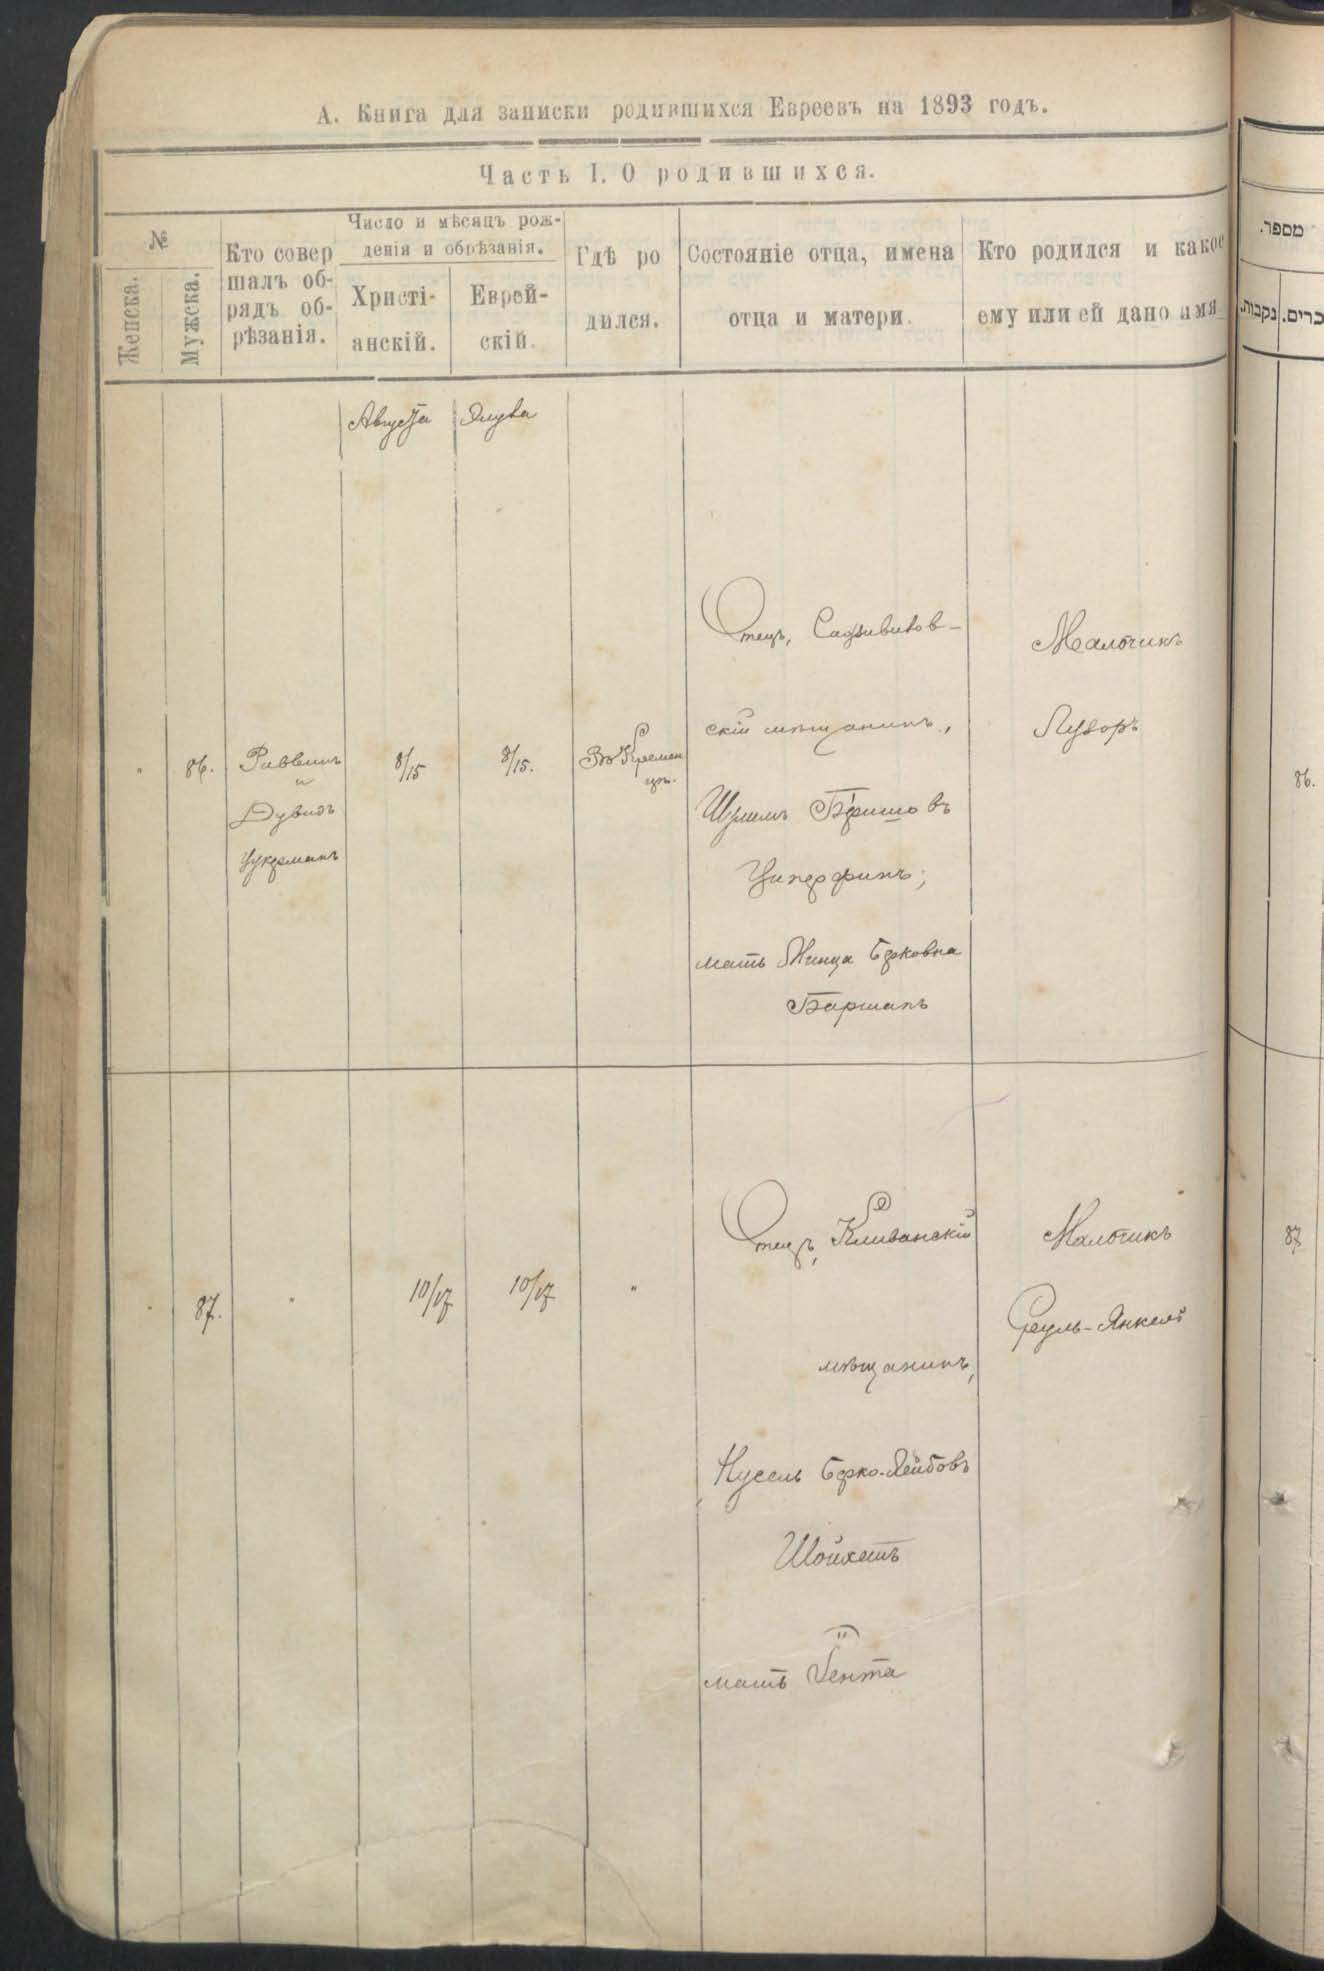 А. Книга для записки родившихся Евреевъ на 1893 годъ.
Часть I. О родившихся.
№
Женска.
Мужска.
Кто совер
шалъ об-
рядъ об-
рѣзанія.
Число и мѣсяцъ рож-
денія и обрѣзанія.
Христі-
анскій.
Еврей-
скій.
Гдѣ ро
дился.
Состояніе отца, имена
отца и матери.
Кто родился и какое
ему или ей дано имя
Августа
Элула
"
86.
Раввинъ
и
Дувидъ
Цукерманъ
8/15
8/15.
Въ Кремен
цѣ.
Отецъ,
скій мѣщанинъ,
Шулимъ
мать Берковна
Мальчикъ
"
87.
"
10/17
10/17
"
Отецъ, Клеванскій
мѣщанинъ,
Нусель Берко-Лейбовъ
Шойхетъ
мать Гента
Мальчикъ
Сруль-Янкель
מספר.
נקבות.
כרים.
86.
87